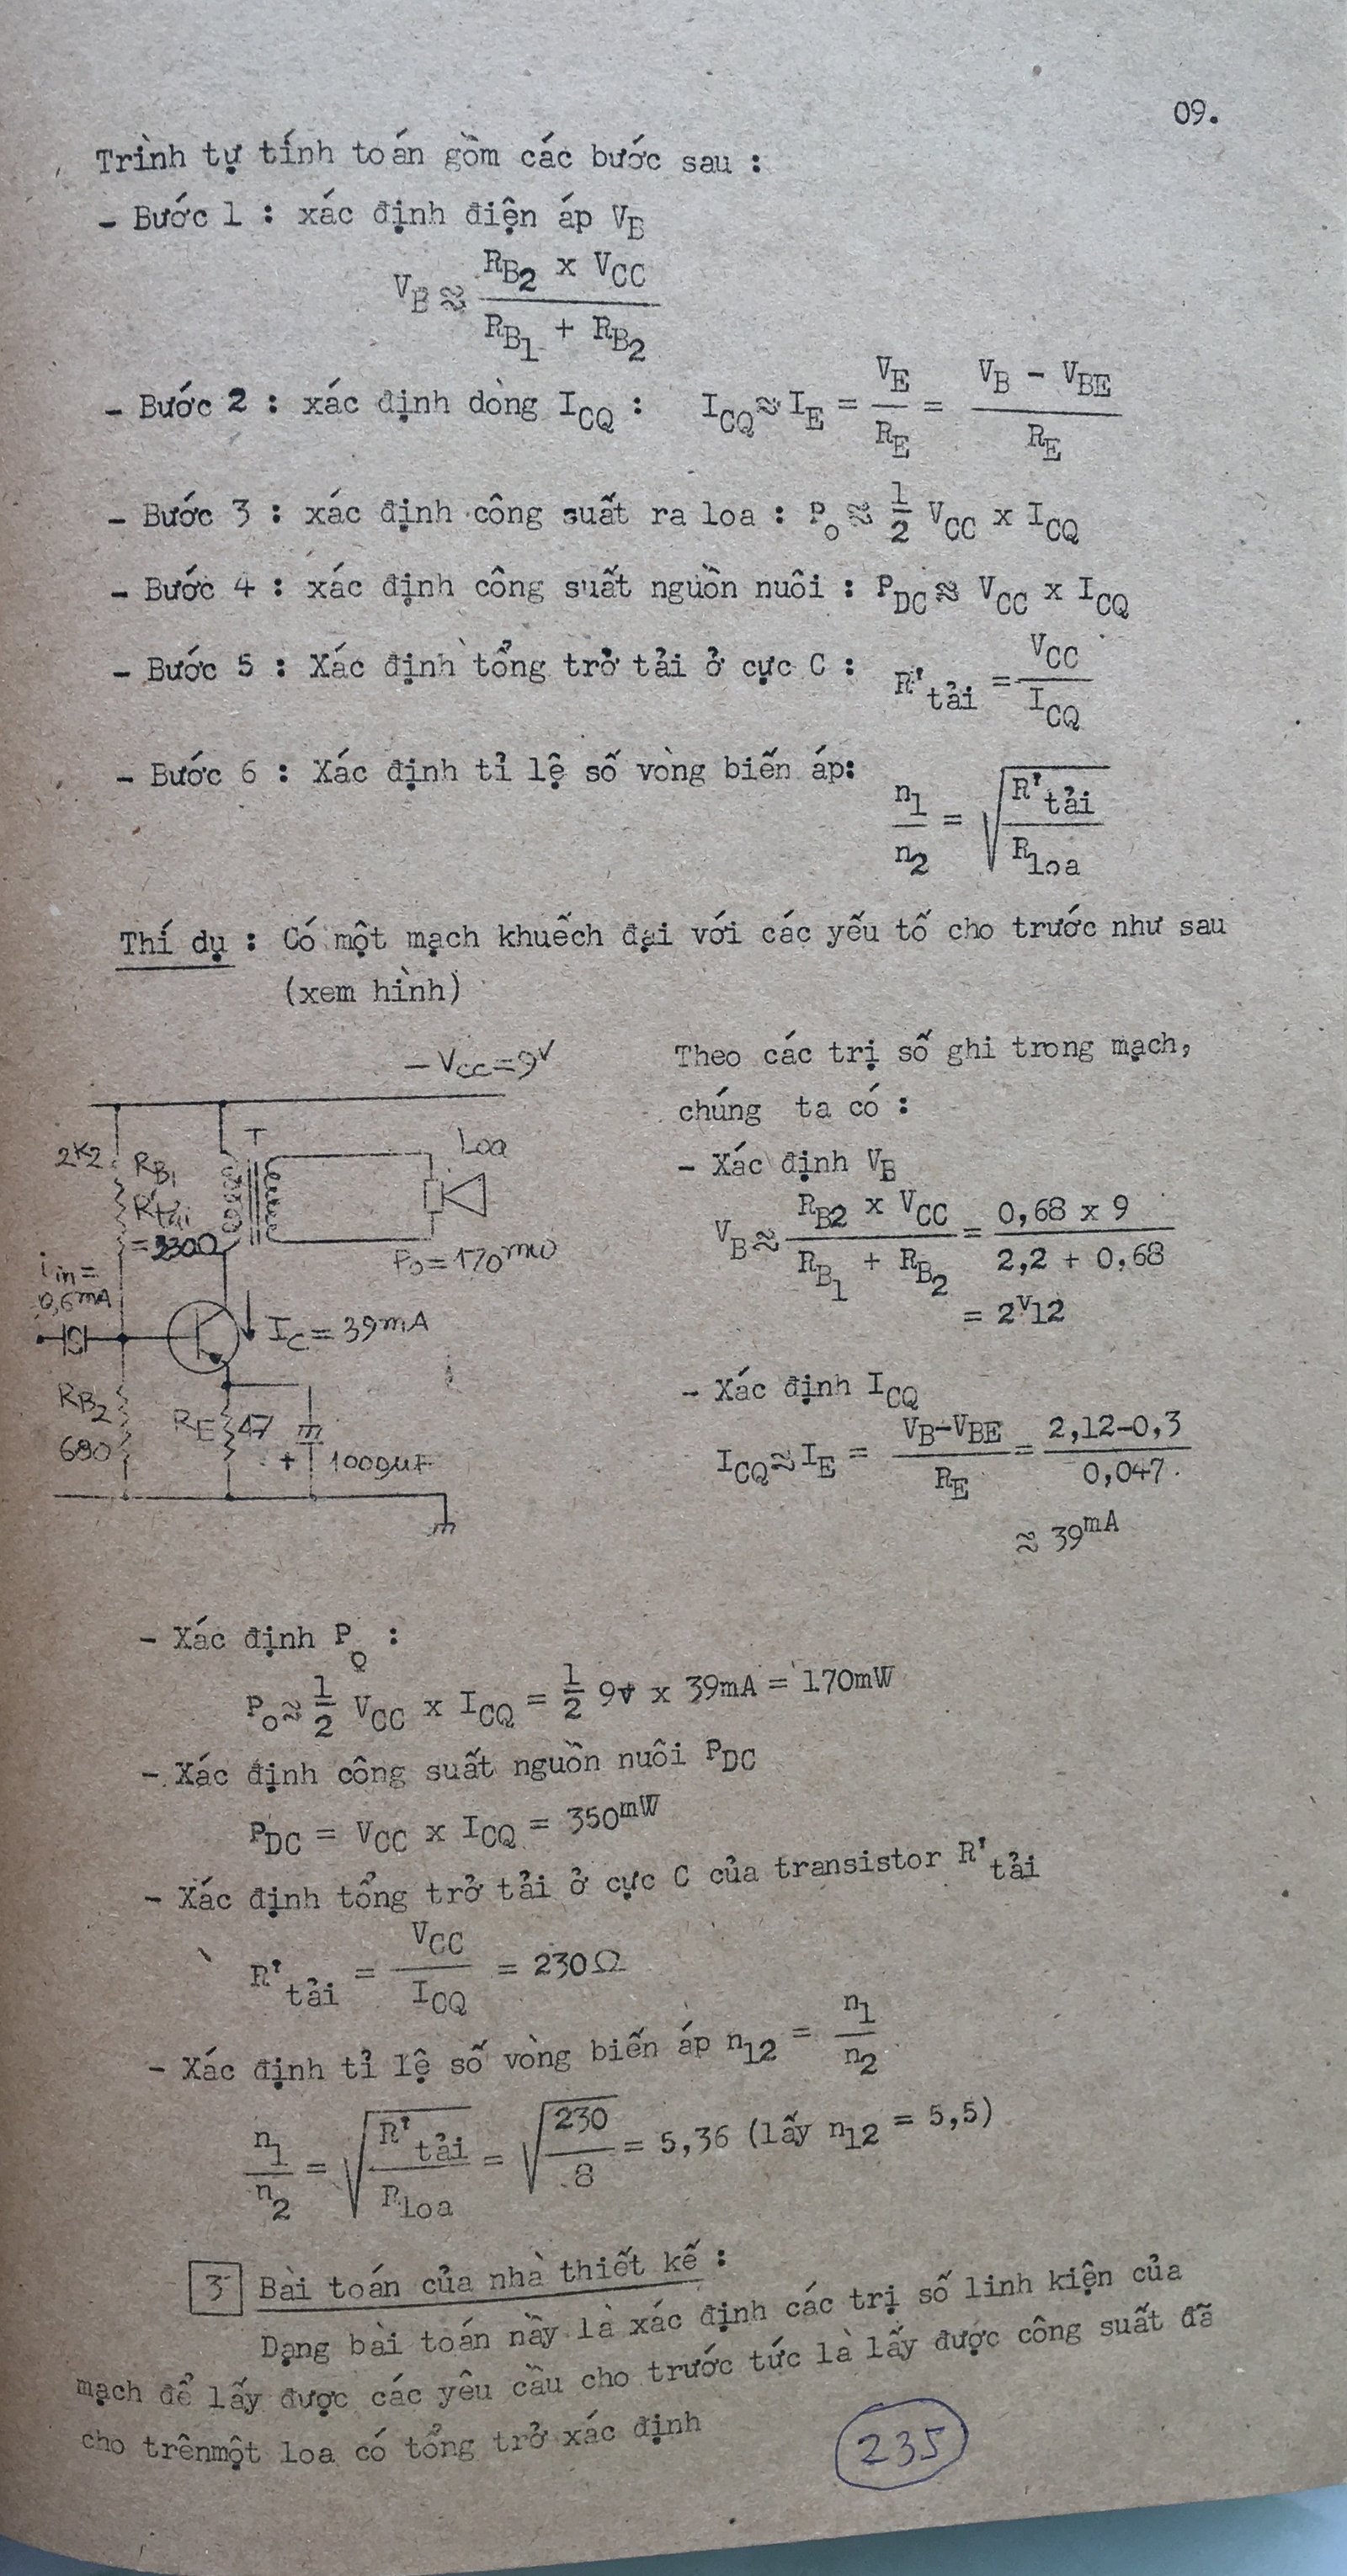 09.
Trình tự tính toán gồm các bước sau :
- Bước 1 : xác định điện áp V_B
V_B ≈ (R_B2 x V_CC) / (R_B1 + R_B2)
- Bước 2 : xác định dòng I_CQ : I_CQ ≈ I_E = V_E / R_E = (V_B - V_BE) / R_E
- Bước 3 : xác định công suất ra loa : P_o ≈ 1/2 V_CC x I_CQ
- Bước 4 : xác định công suất nguồn nuôi : P_DC ≈ V_CC x I_CQ
- Bước 5 : Xác định tổng trở tải ở cực C : R'_tải = V_CC / I_CQ
- Bước 6 : Xác định tỉ lệ số vòng biến áp: n_1 / n_2 = √(R'_tải / R_loa)
Thí dụ : Có một mạch khuếch đại với các yếu tố cho trước như sau
(xem hình)
-V_CC=9V
T
Loa
2K2
R_B1
R'tải
=230Ω
P_o=170mW
i_in=
0,6mA
I_C=39mA
R_B2
680
R_E
47
+
1000µF
Theo các trị số ghi trong mạch,
chúng ta có :
- Xác định V_B
V_B ≈ (R_B2 x V_CC) / (R_B1 + R_B2) = (0,68 x 9) / (2,2 + 0,68)
= 2V12
- Xác định I_CQ
I_CQ ≈ I_E = (V_B-V_BE) / R_E = (2,12-0,3) / 0,047
≈ 39mA
- Xác định P_o :
P_o ≈ 1/2 V_CC x I_CQ = 1/2 9v x 39mA = 170mW
- Xác định công suất nguồn nuôi P_DC
P_DC = V_CC x I_CQ = 350mW
- Xác định tổng trở tải ở cực C của transistor R'_tải
R'_tải = V_CC / I_CQ = 230Ω
- Xác định tỉ lệ số vòng biến áp n_12 = n_1 / n_2
n_1 / n_2 = √(R'_tải / R_loa) = √(230 / 8) = 5,36 (lấy n_12 = 5,5)
3 Bài toán của nhà thiết kế :
Dạng bài toán nầy là xác định các trị số linh kiện của
mạch để lấy được các yêu cầu cho trước tức là lấy được công suất đã
cho trênmột loa có tổng trở xác định
235